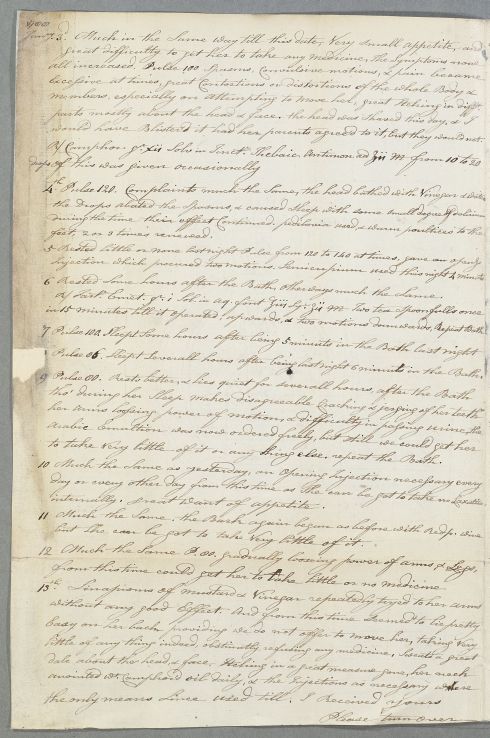 3. Much in the Same way till this date, Very small appetite, and
great difficulty to get her to take any Medicine, the Symptoms now
all increased. Pulse 100 Spasms, Convulsive motions, & pain became
excessive at times, great Contortions or distortions of the whole Body &
members, especially on attempting to move her, great Itching in diff.t
parts mostly about the head & face, the head was Shaved this day, & I
would have Blister'd it had her parents agreed to it, but they would not.
Camphor. gr. xii Solv. in Tinct. Thebaic. Antimon. ad Zii M from 10 to 20
drops of this was given occasionally
4th Pulse 120. Complaints much the Same, the head bathed with Vinegar &
the Drops abated the Spasms, & caused Sleep with some small degree of delirium
during the time their effect Continued. pediluvia used & warm poultices to the
feet, 2 or 3 times renewed.
5 Rested little or none last night Pulse from 120 to 140 at times, gave an opening
Injection which procured two motions. Semicupium used this night 4 minutes
6 Rested Some hours after the Bath, otherways much the Same.
Tart. Emet. gr. i Solv. in aq. font Zii M Two tea Spoonfulls once
in 15 minutes till it operated, upwards, & two motions downwards, Repeat Bath
7 Pulse 100. Sleept Some hours after being 5 minutes in the Bath last night
Pulse 96. Sleept Severall hours after being last night 6 minuts in the Bath.
9 Pulse 90. Rests better, & lies quiet for severall hours, after the Bath
tho' during her Sleep makes disagreeable Gnashing & of her teeth
her arms loosing power of motion, & difficulty in passing urine, the
Arabic Emultion was now ordered freely, but still we could get her
to take very little of it or any thing else, repeat the Bath.
10 Much the Same as yesterday, an Opening Injection necessary every
day or every other day from this time as She can be got to take no Laxative
internally. Great want of appetite.
11 Much the Same, the Bark again begun as before with Redp. wine
but She can be got to take Very little of it.
12 Much the Same P. 90. gradually loosing power of arms & Legs.
from this time could get her to take little or no medicine
13th Sinapisms of mustard & Vinegar repeatedly tryed to her arms
without any good Effect. And from this time Seemed to lie pretty
Easy on her back providing we do not offer to move her, taking Very
little of any thing indeed, obstinatly refusing any medicine, Sweats a great
dale about the head & face, Itching in a great measure gone, her neck
anointed wt. Camph.d oil daily, & the Injections as necessary where
the only means Since used till I Received yours
Please turn over